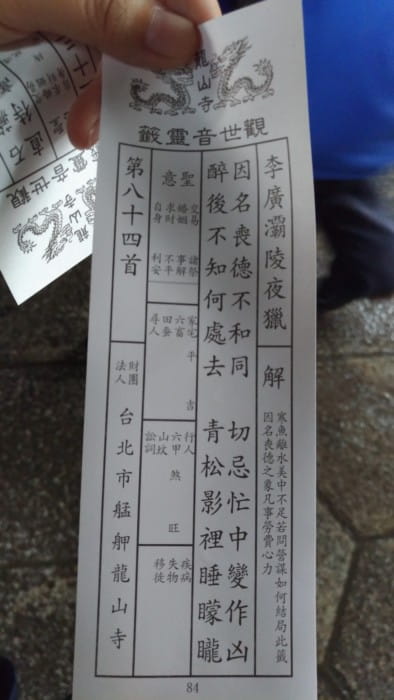 龍山寺
觀世音靈籤
李廣灞陵夜獵
解
寒魚離水美中不足若問營謀如何結局此籤
因名喪德之象凡事勞費心力
因名喪德不和同 切忌忙中變作凶
醉後不知何處去 青松影裡睡矇矓
聖意
交易
婚姻
求財
自身
諸事不利
祭解平安
家宅
六畜
田蚕
尋人
平 吉
行人
六甲
山坟
訟詞
煞 旺
疾病
失物
移徙
第八十四首
財團
法人
台北市艋舺龍山寺
84